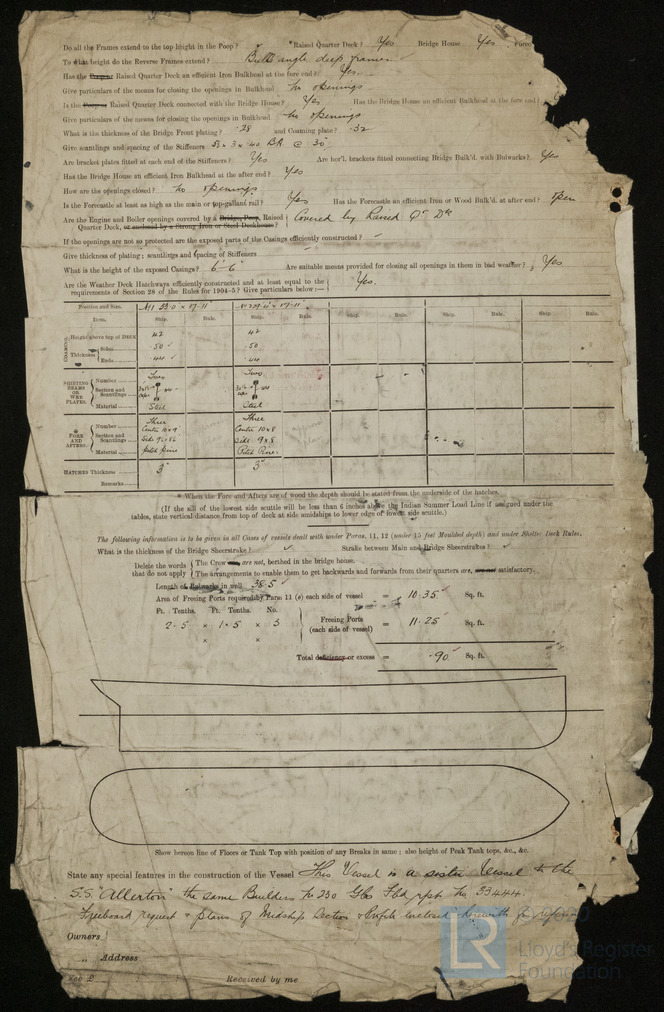 Do all the Frames extend to the top height in the Poop? Raised Quarter Deck? Yes Bridge House Yes
To what height do the Reverse Frames extend? Bulb angle deep frames
Has the Poop or Raised Quarter Deck an efficient Iron Bulkhead at the fore end? Yes
Give particulars of means for closing the openings in Bulkhead no openings
Is the Poop or Raised Quarter Deck connected with the Bridge House? Yes Has the Bridge House an efficient Bulkhead at the fore end?
Give particulars of means for closing the openings in Bulkhead no openings
What is the thickness of the Bridge Front plating? .28 and Coaming plate? .32
Give scantlings and spacing of the Stiffeners 5½ x 3 x .40 BA @ 30"
Are bracket plates fitted at each end of the Stiffeners? Yes Are hor'l. brackets fitted connecting Bridge Bulk'd. with Bulwarks? Yes
Has the Bridge House an efficient Iron Bulkhead at the after end? Yes
How are the openings closed? no openings
Is the Forecastle at least as high as the main or top-gallant rail? Yes Has the Forecastle an efficient Iron or Wood Bulk'd. at after end? open
Are the Engine and Boiler openings covered by a Bridge, Poop, Raised Covered by Raised Qr Dk
Quarter Deck, or enclosed by a Strong Iron or Steel Deckhouse?
If the openings are not so protected are the exposed parts of the Casings efficiently constructed?
Give thickness of plating; scantlings and spacing of Stiffeners
What is the height of the exposed Casings? 6'-6" Are suitable means provided for closing all openings in them in bad weather? Yes
Are the Weather Deck Hatchways efficiently constructed and at least equal to the Yes.
requirements of Section 28 of the Rules for 1904-5? Give particulars below:—
Position and Size.
Item. Ship. Rule. Ship. Rule. Ship. Rule. Ship. Rule. Ship.
COAMING. Height above top of DECK 42 42
Thickness Sides .50 .50
Ends .44 .44
SHIFTING BEAMS OR WEB PLATES. Number Two Two
Section and Scantlings
Material Steel Steel
* FORE AND AFTERS. Number Three Three
Section and Scantlings Centre 10 x 9 Centre 10 x 8
Side Side 9 x 8
Material Pitch Pine Pitch Pine
HATCHES Thickness 3" 3"
Remarks
* When the Fore and Afters are of wood the depth should be stated from the underside of the hatches.
(If the sill of the lowest side scuttle will be less than 6 inches above the Indian Summer Load Line if assigned under the
tables, state vertical distance from top of deck at side amidships to lower edge of lowest side scuttle.)
The following information is to be given in all Cases of vessels dealt with under Paras. 11, 12 (under 15 feet Moulded depth) and under Shelter Deck Rules.
What is the thickness of the Bridge Sheerstrake? Strake between Main and Bridge Sheerstrakes?
Delete the words The Crew are not, berthed in the bridge house.
that do not apply The arrangements to enable them to get backwards and forwards from their quarters are, are not satisfactory.
Length of Bulwarks in well 38.5
Area of Freeing Ports required by Para 11 (e) each side of vessel = 10.35 Sq. ft.
Ft. Tenths. Ft. Tenths. No.
2.5 x 1.5 x 3 Freeing Ports (each side of vessel) = 11.25 Sq. ft.
x x
Total deficiency or excess = .90 Sq. ft.
Show hereon line of Floors or Tank Top with position of any Breaks in same; also height of Peak Tank tops, &c., &c.
State any special features in the construction of the Vessel This Vessel is a sister Vessel to the
S.S. "Allerton" the same Builders No 230 Gls Fbd rpt No 33444.
Freeboard request & plans of Midship Section & Profile enclosed herewith for
Owners
„ Address
Fee £ Received by me
LR
Lloyd's Register
Foundation